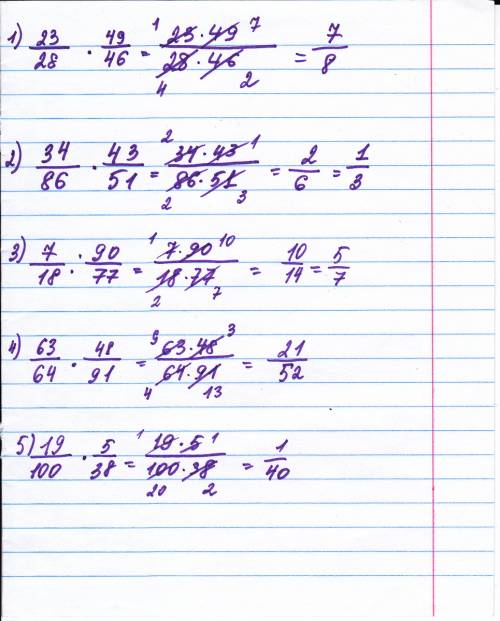 1) 23/28 · 49/46 = 1 23·49 7 / 4 28·46 2 = 7/8
2) 34/86 · 43/51 = 2 34·43 1 / 2 86·51 3 = 2/6 = 1/3
3) 7/18 · 90/77 = 1 7·90 10 / 2 18·77 7 = 10/14 = 5/7
4) 63/64 · 48/91 = 9 63·48 3 / 4 64·91 13 = 21/52
5) 19/100 · 5/38 = 1 19·5 1 / 20 100·38 2 = 1/40